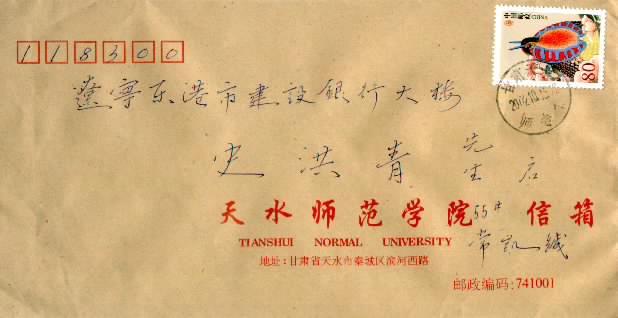 中国邮政 CHINA
80
118300
遼寧东港市建設銀行大楼
史洪青 先生 启
天水师范学院 55# 信箱
TIANSHUI NORMAL UNIVERSITY 常凯缄
地址:甘肃省天水市秦城区滨河西路
邮政编码:741001